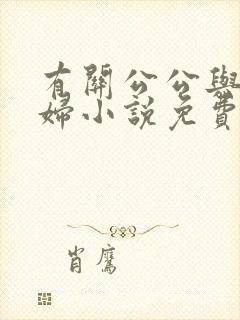 有關公公與
婦小說免費
肖鷹